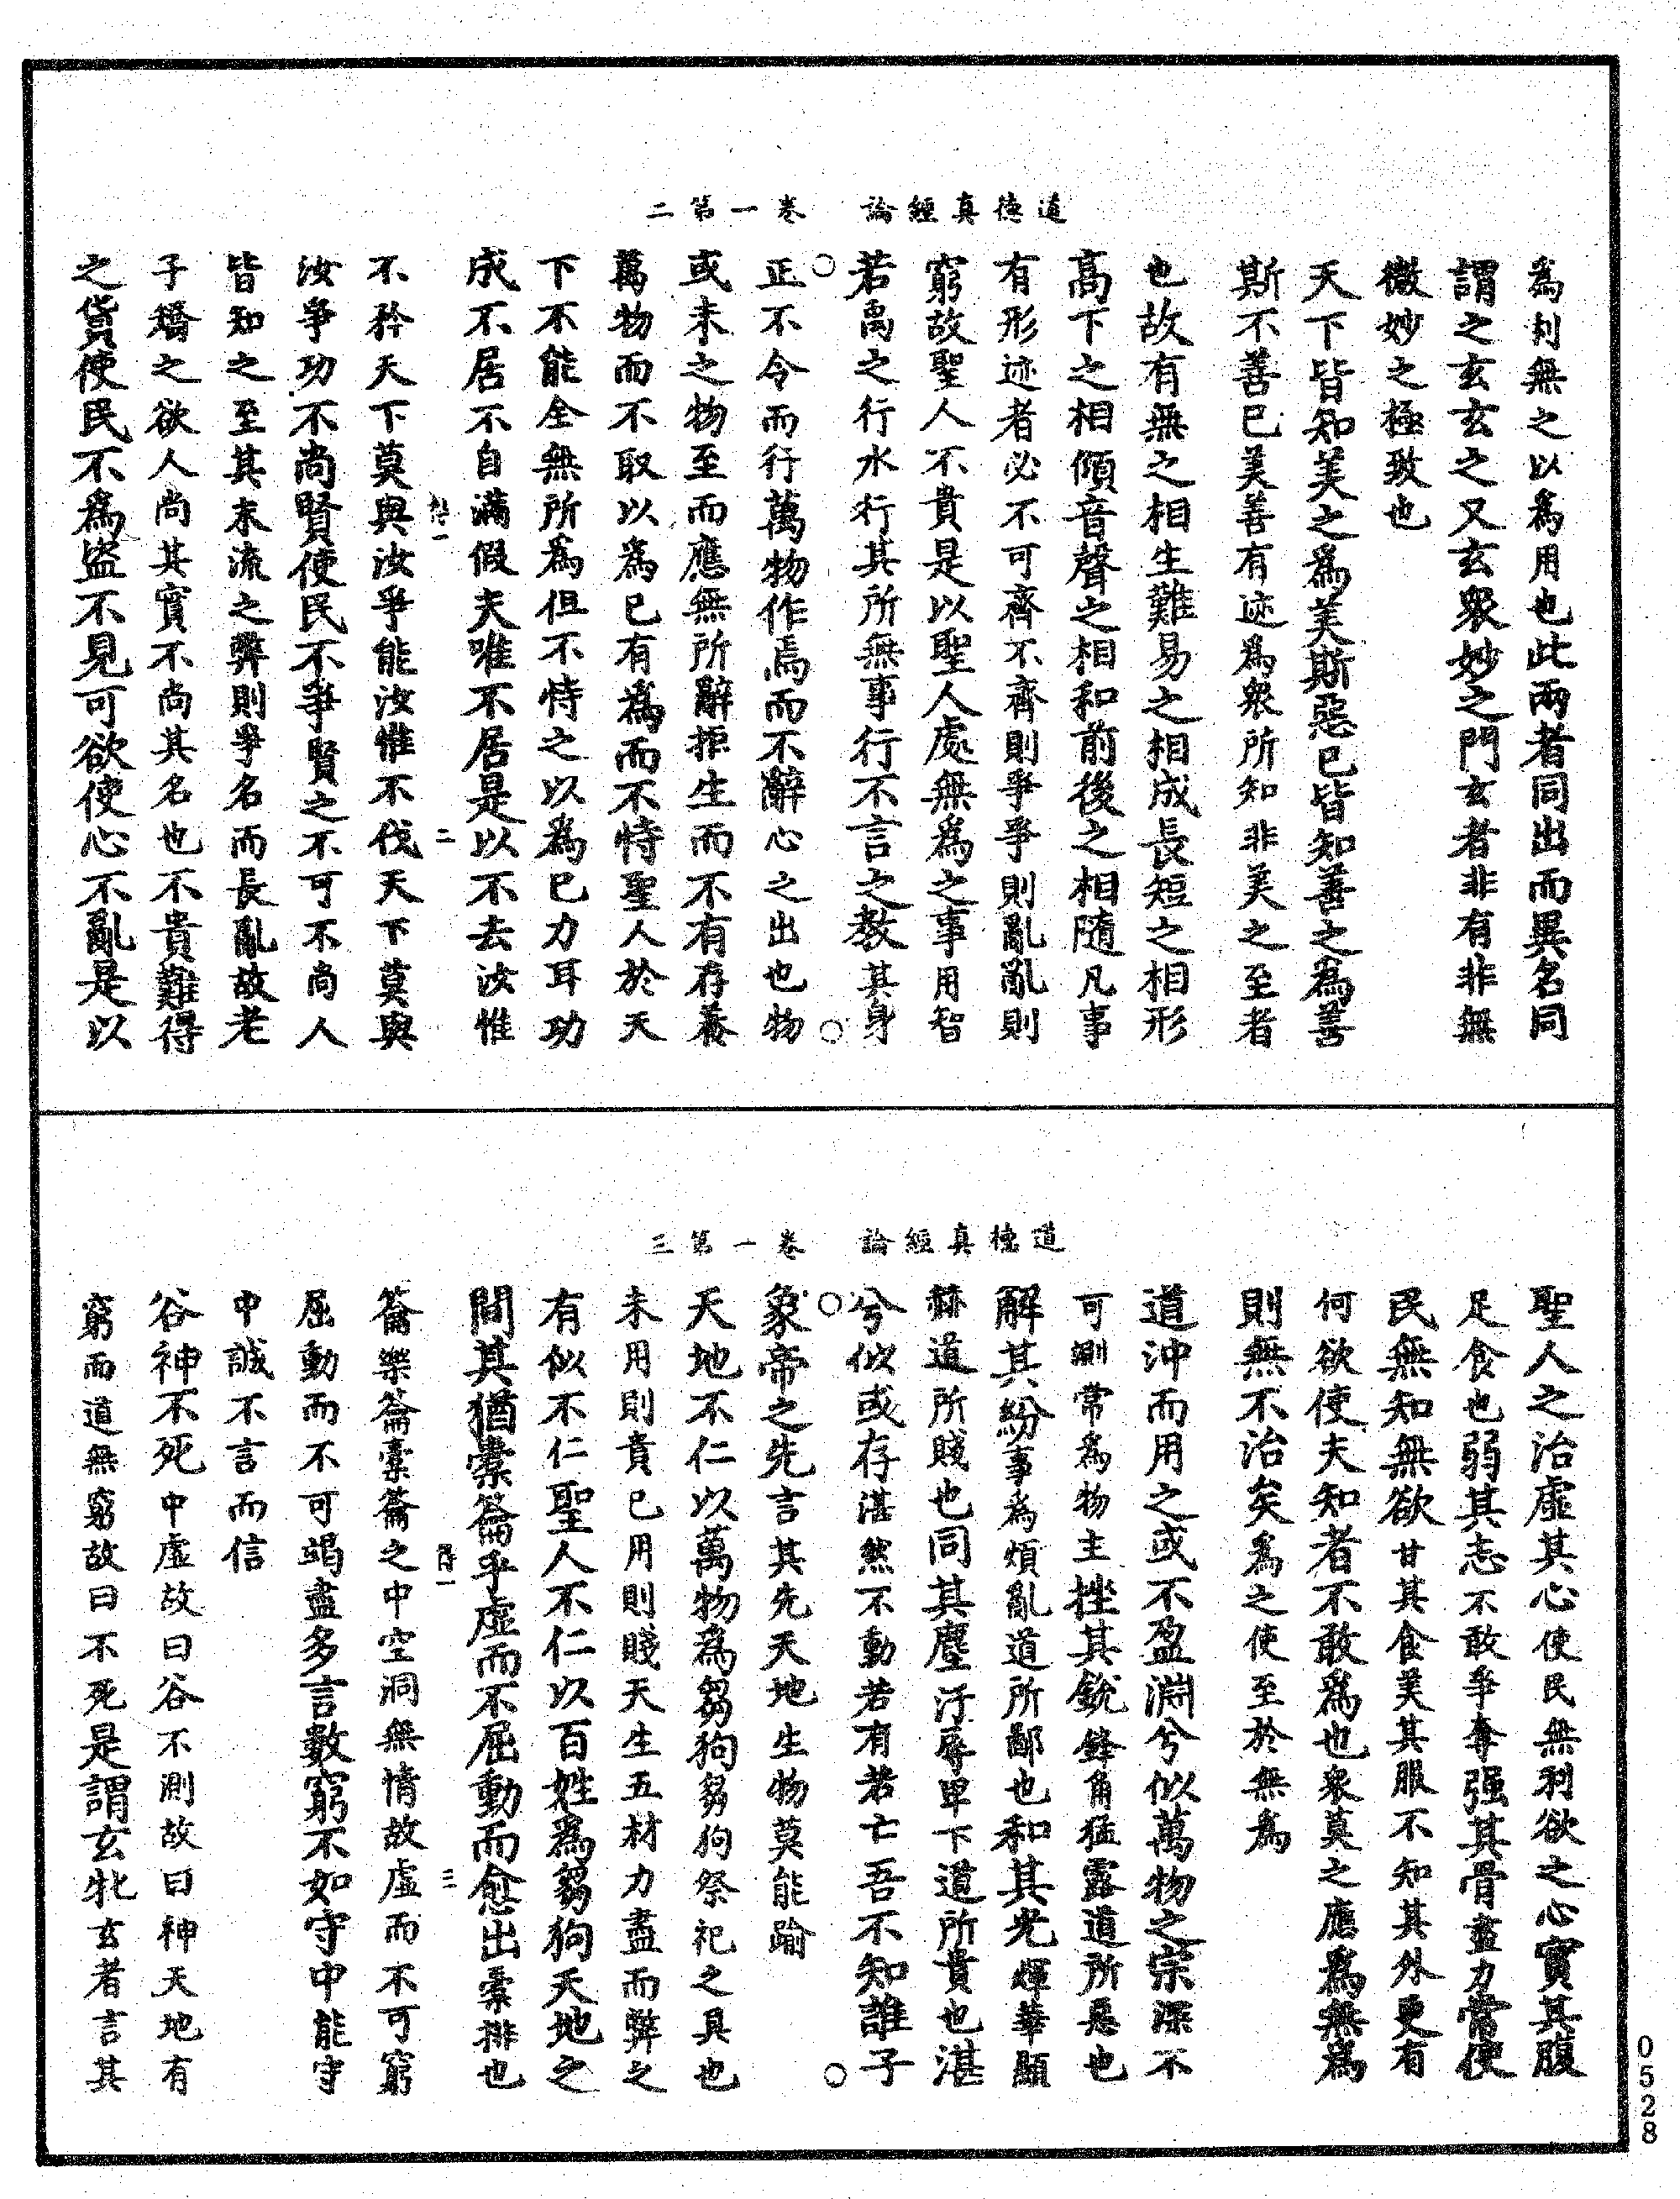 道德真經論 卷一第二
為利無之以為用也此兩者同出而異名同
謂之玄玄之又玄衆妙之門玄者非有非無
微妙之極致也
天下皆知美之為美斯惡已皆知善之為善
斯不善已美善有迹為衆所知非美之至者
也故有無之相生難易之相成長短之相形
高下之相傾音聲之相和前後之相隨凡事
有形迹者必不可齊不齊則爭爭則亂亂則
窮故聖人不貴是以聖人處無為之事用智
若禹之行水行其所無事行不言之教其身
正不令而行萬物作焉而不辭心之出也物
或未之物至而應無所辭拒生而不有存養
萬物而不取以為已有為而不恃聖人於天
下不能全無所為但不恃之以為已力耳功
成不居不自滿假夫唯不居是以不去汝惟
不矜天下莫與汝爭能汝惟不伐天下莫與
汝爭功不尚賢使民不爭賢之不可不尚人
皆知之至其末流之弊則爭名而長亂故老
子矯之欲人尚其實不尚其名也不貴難得
之貨使民不為盜不見可欲使心不亂是以
二
道德真經論 卷一第三
聖人之治虛其心使民無利欲之心實其腹
足食也弱其志不敢爭奪强其骨盡力常使
民無知無欲甘其食美其服不知其外更有
何欲使夫知者不敢為也衆莫之應為無為
則無不治矣為之使至於無為
道沖而用之或不盈淵兮似萬物之宗深不
可測常為物主挫其銳鋒角猛露道所惡也
解其紛事為煩亂道所鄙也和其光輝華顯
赫道所賤也同其塵汙辱卑下道所貴也湛
兮似或存湛然不動若有若亡吾不知誰子
象帝之先言其先天地生物莫能踰
天地不仁以萬物為芻狗芻狗祭祀之具也
未用則貴已用則賤天生五材力盡而弊之
有似不仁聖人不仁以百姓為芻狗天地之
間其猶橐籥乎虛而不屈動而愈出橐排也
籥樂籥橐籥之中空洞無情故虛而不可窮
屈動而不可竭盡多言數窮不如守中能守
中誠不言而信
谷神不死中虛故曰谷不測故曰神天地有
窮而道無窮故曰不死是謂玄牝玄者言其
三
0528